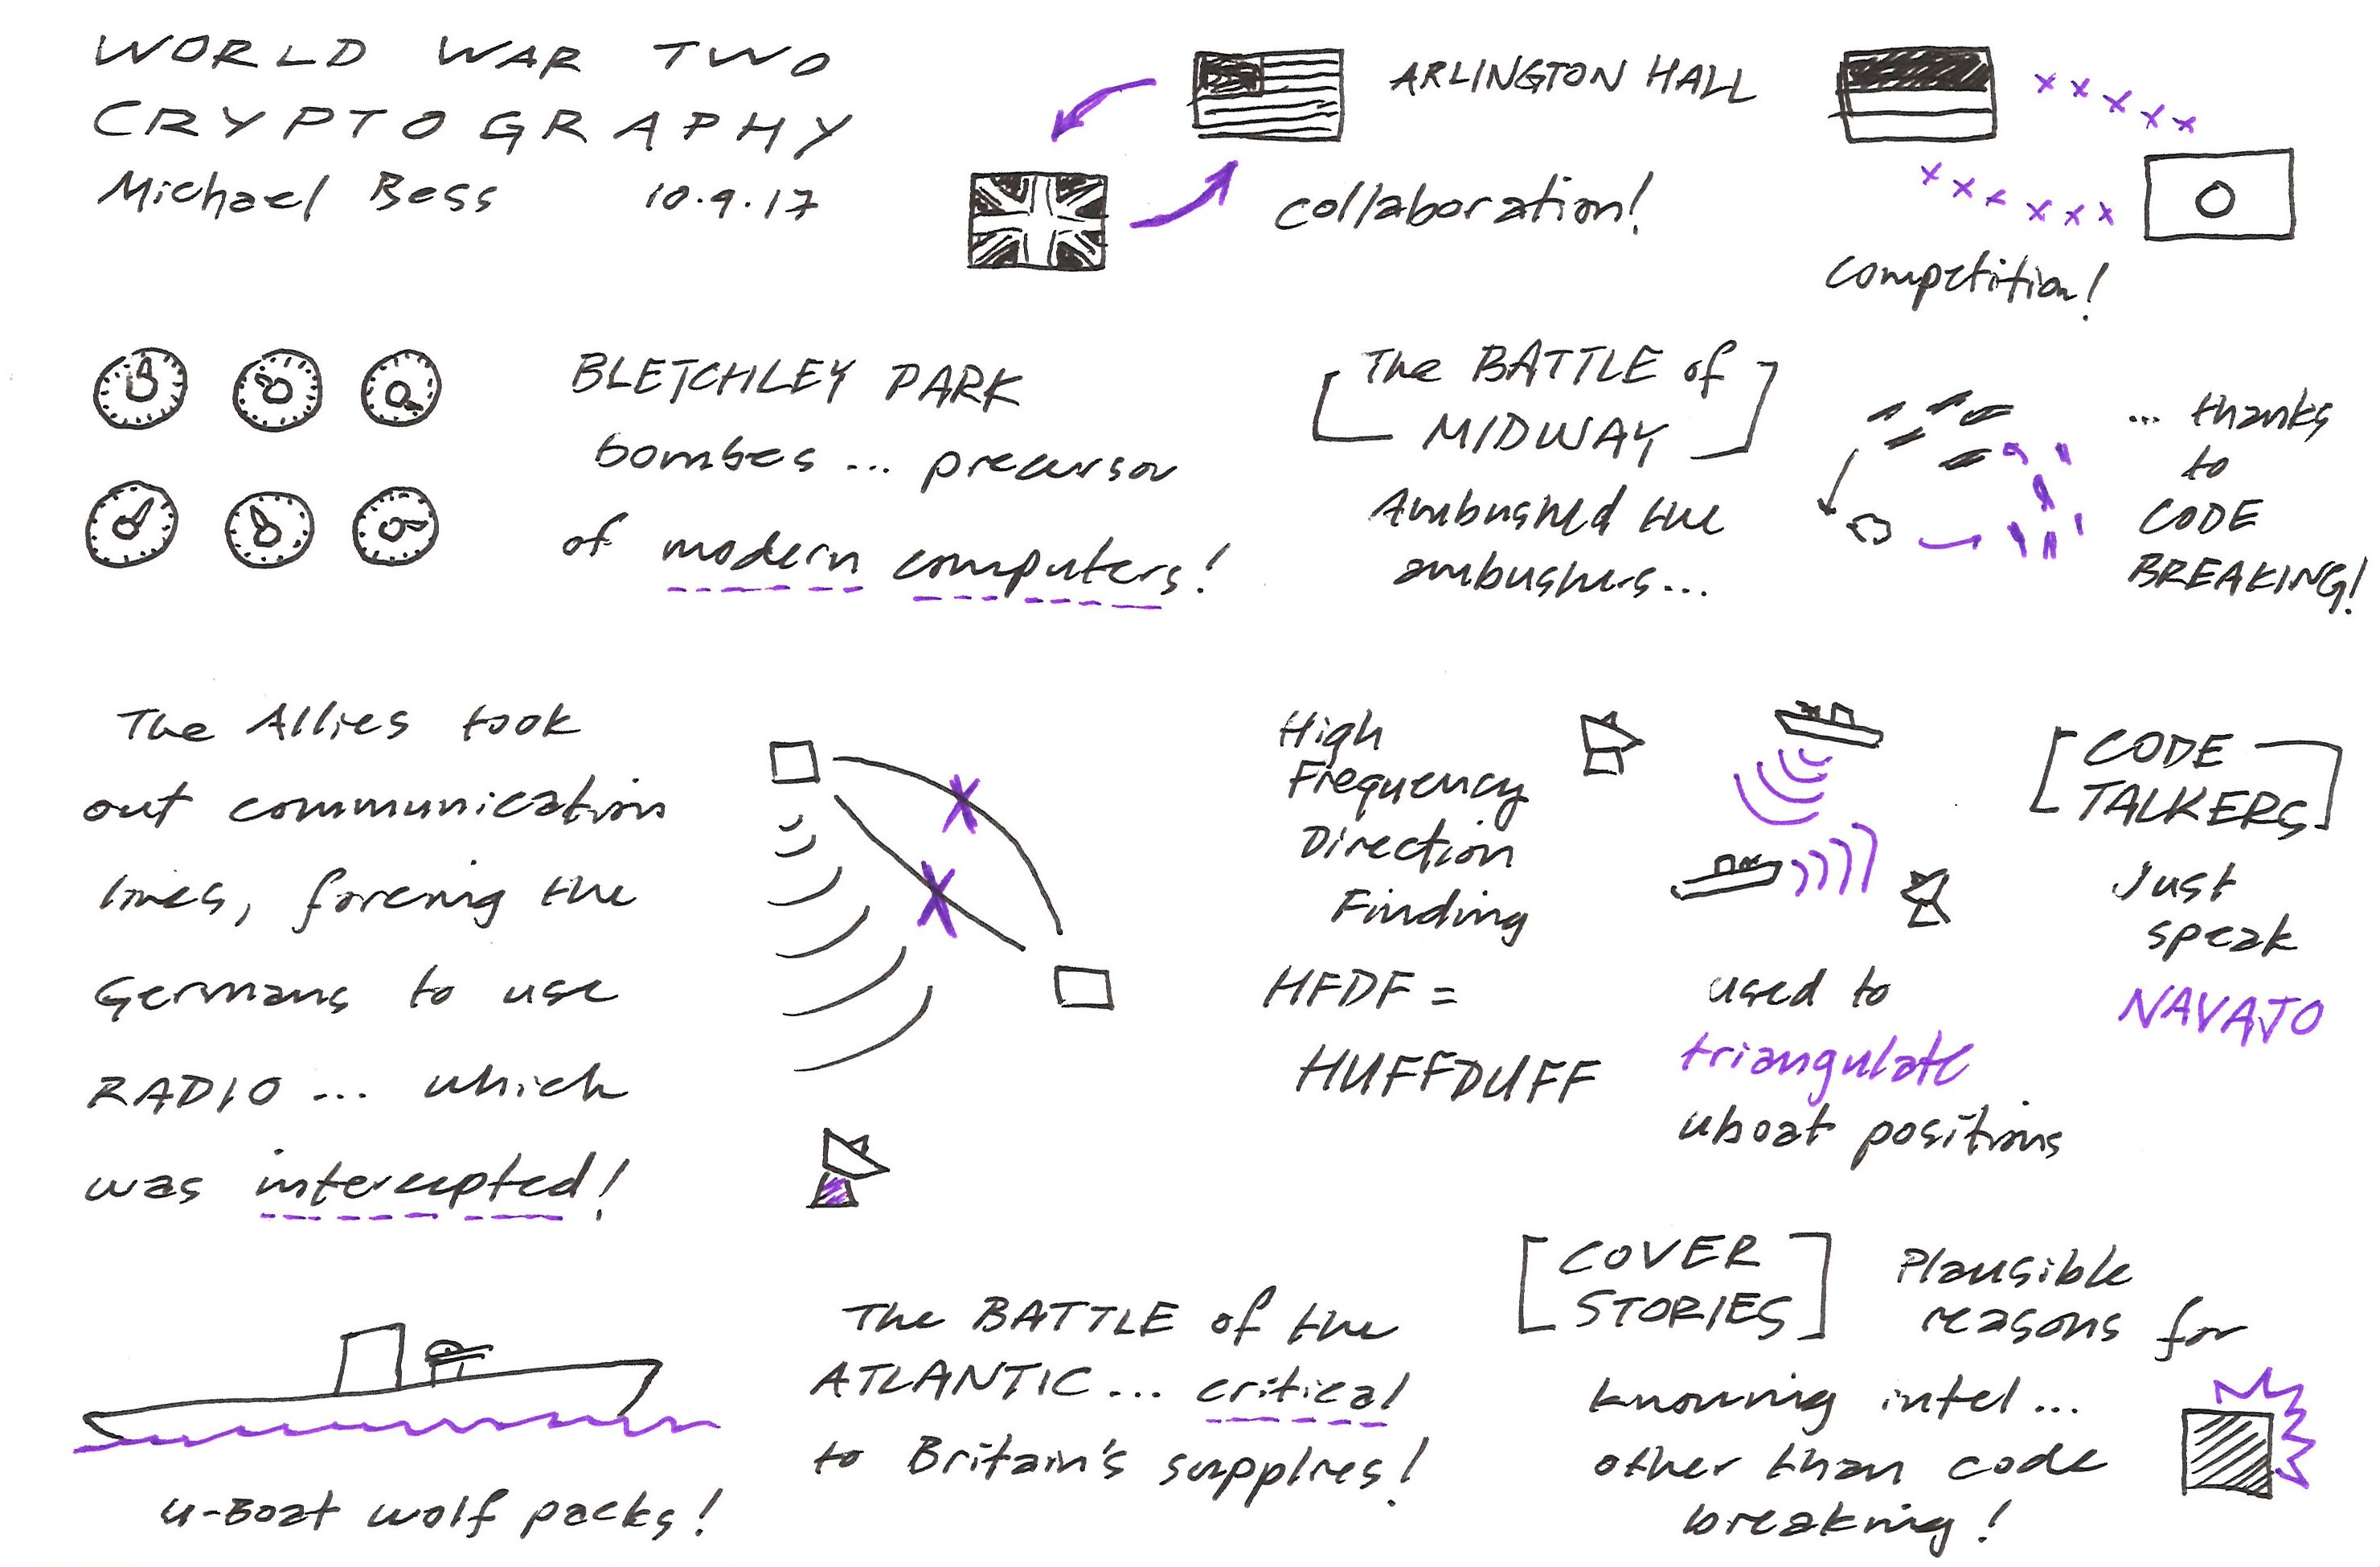 WORLD WAR TWO
CRYPTOGRAPHY
Michael Bess 10.9.17
ARLINGTON HALL
collaboration!
competition!
BLETCHLEY PARK
bombes ... precursor
of modern computers!
The BATTLE of
MIDWAY
Ambushed the
ambushers...
... thanks
to
CODE
BREAKING!
The Allies took
out communication
lines, forcing the
Germans to use
RADIO ... which
was intercepted!
High
Frequency
Direction
Finding
HFDF =
HUFFDUFF
used to
triangulate
uboat positions
CODE
TALKERS
Just
speak
NAVAJO
U-Boat wolf packs!
The BATTLE of the
ATLANTIC ... critical
to Britain's supplies!
COVER
STORIES
Plausible
reasons for
knowing intel ...
other than code
breaking!